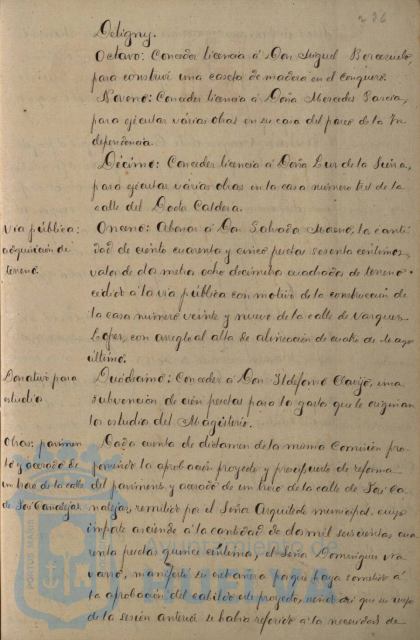 286
Deligny.
Octavo: Conceder licencia á Don Miguel
para construir una caseta de madera en el Conquero.
Noveno: Conceder licencia á Doña Mercedes García,
para ejecutar várias obras en su casa del paseo de la In
dependencia.
Décimo: Conceder licencia á Doña Luz de la
para ejecutar várias obras en la casa número tres de la
calle del Doctor Caldera.
Via pública:
adquisición de
terreno.
Onceno: Abonar á Don Salvador Moreno, la canti
dad de ciento cuarenta y cinco pesetas sesenta céntimos,
valor de dos metros ocho decímetros cuadrados de terreno
cedido á la vía pública con motivo de la construcción de
la casa número veinte y nueve de la calle de Vazquez
Lopez, con arreglo al alta de alineación de cuatro de Mayo
último.
Donativo para
estudios
Duodécimo: Conceder á Don Ildefonso Clavijo, una
subvención de cien pesetas para los gastos que le originan
los estudios del Magisterio.
Obras: pavimen
to y acerado de
un trozo de la calle
de José Canalejas
Dada cuenta de dictamen de la misma Comisión pro
poniendo la aprobación proyecto y presupuesto de reforma
del pavimento y acerado de un trozo de la calle de José Ca
nalejas, remitido por el Señor Arquitecto municipal, cuyo
importe asciende á la cantidad de dos mil seiscientas cua
renta pesetas quince céntimos, el Señor Dominguez
manifestó su extrañeza porque haya sometido á
la aprobación del cabildo este proyecto, siendo así que su ruego
de la sesión anterior se había referido á la necesidad de
PORTUS MARIS